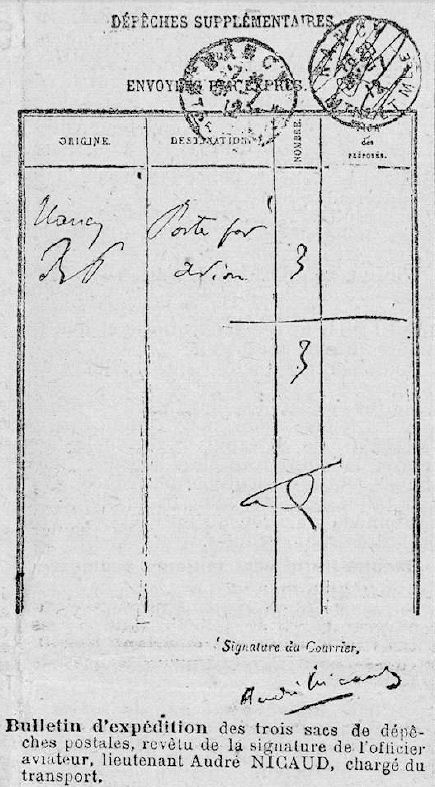 DÉPÊCHES SUPPLÉMENTAIRES
NANCY
ENVOYÉES PAR EXPRÈS.
ORIGINE.
DESTINATION.
NOMBRE.
des
PRÉPOSÉS.
Nancy
Poste par
RP
avion
3
3
Signature du Courrier,
André Nicaud
Bulletin d'expédition des trois sacs de dépê-
ches postales, revêtu de la signature de l'officier
aviateur, lieutenant André NICAUD, chargé du
transport.